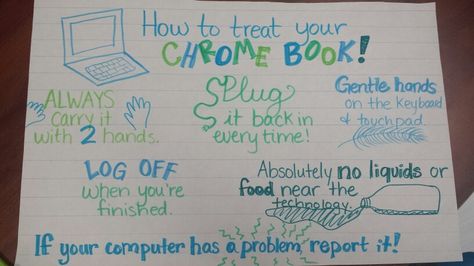 How to treat your
CHROME BOOK!
ALWAYS
carry it
with 2 hands.
Plug
it back in
every time!
Gentle hands
on the keyboard
& touchpad.
LOG OFF
when you're
finished.
Absolutely no liquids or
food near the
technology.
If your computer has a problem, report it!